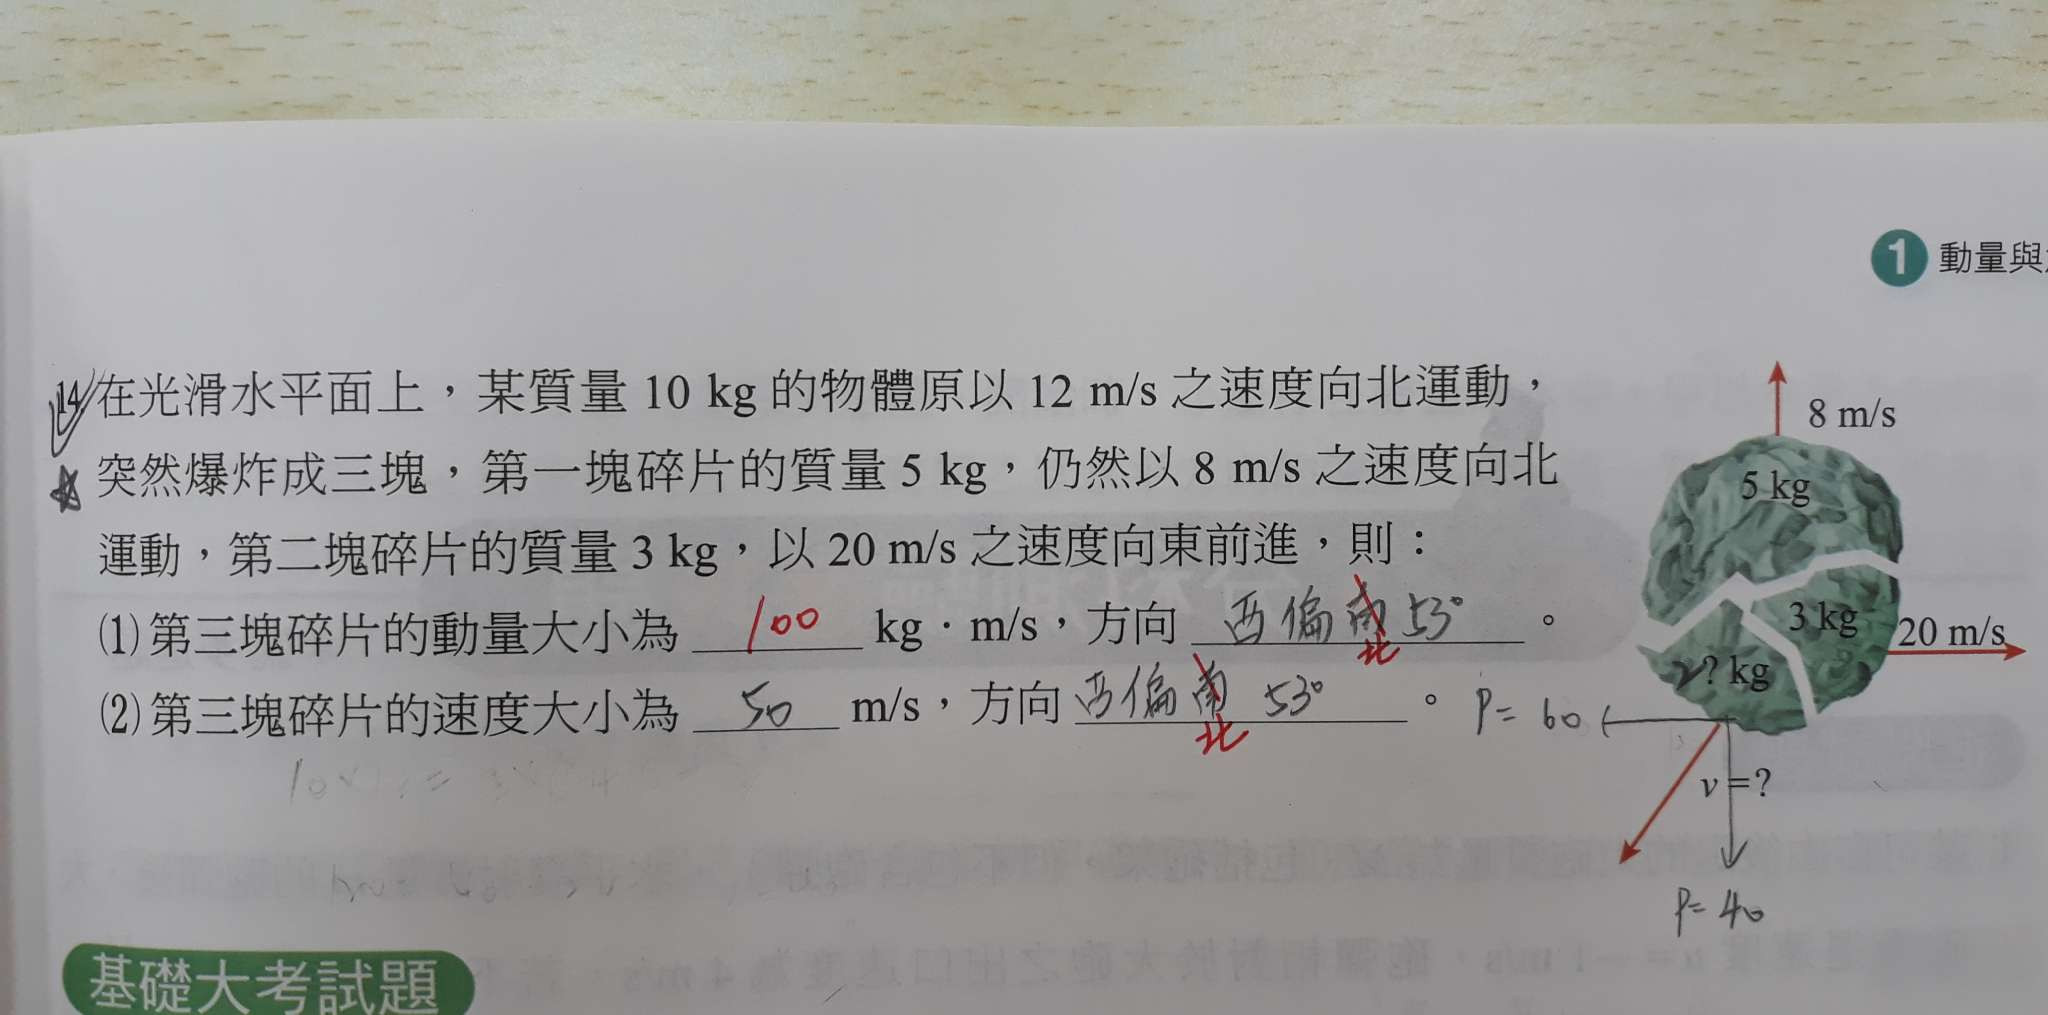 1 動量與
14 在光滑水平面上，某質量 10 kg 的物體原以 12 m/s 之速度向北運動，
突然爆炸成三塊，第一塊碎片的質量 5 kg，仍然以 8 m/s 之速度向北
運動，第二塊碎片的質量 3 kg，以 20 m/s 之速度向東前進，則：
(1)第三塊碎片的動量大小為 100 kg．m/s，方向 西偏南 53° 。
北
(2)第三塊碎片的速度大小為 50 m/s，方向 西偏南 53° 。
北
8 m/s
5 kg
3 kg
20 m/s
? kg
P= 60
v=?
P= 40
基礎大考試題